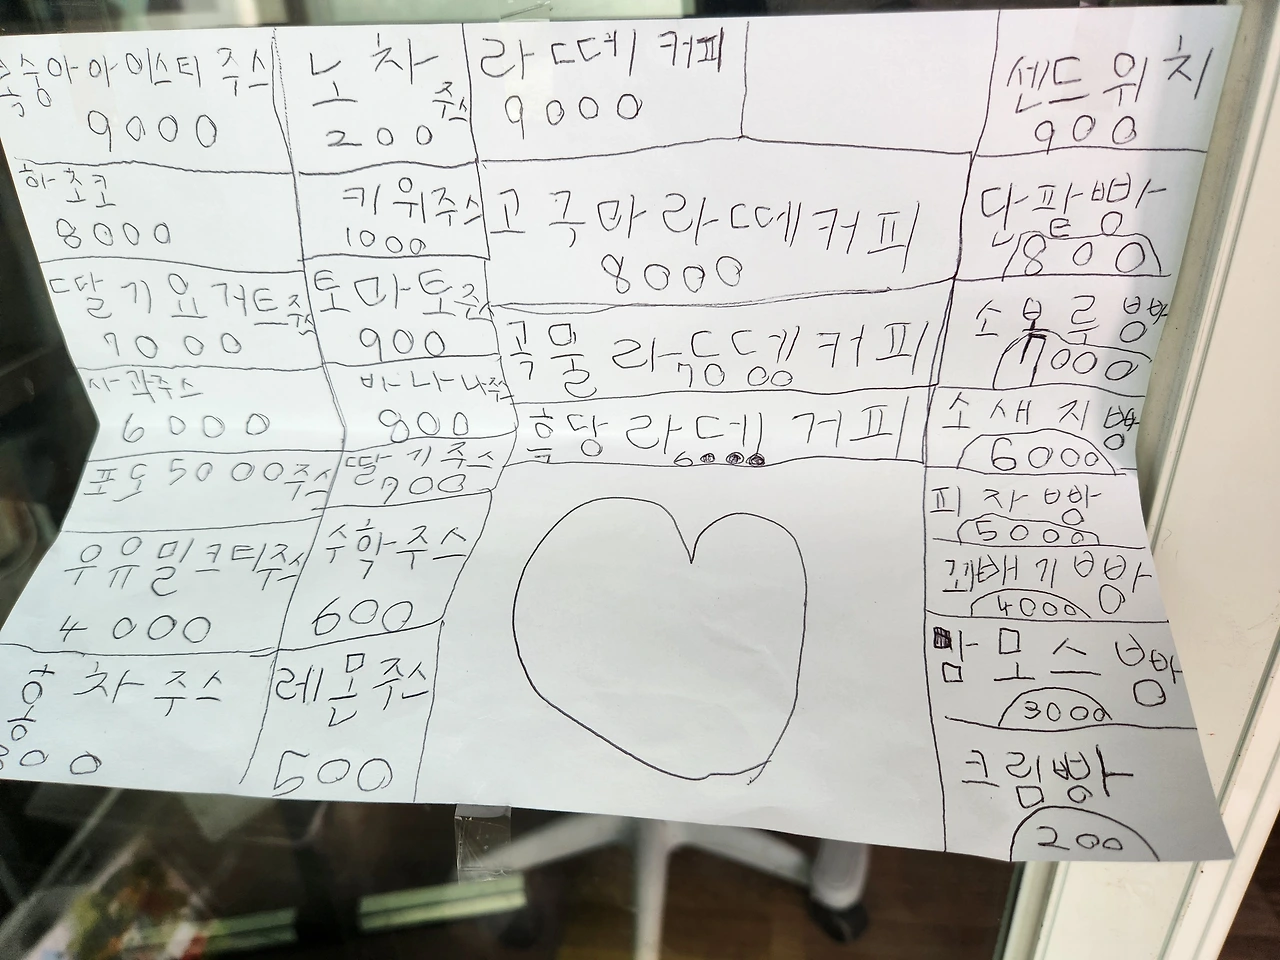 복숭아아이스티 주스
9000
하초코
8000
딸기요거트주스
7000
사과주스
6000
포도5000주스
우유밀크티주스
4000
홍차주스
300
노차
주스
200
키위주스
1000
토마토주스
900
바나나주스
800
딸기주스
700
수학주스
600
레몬주스
500
라떼커피
9000
고구마라떼커피
8000
곡물라떙커피
7000
흑당라떼커피
6000
센드위치
900
단팥빵
800
소보루빵
7000
소새지빵
6000
피자빵
5000
꽤배기빵
4000
맘모스빵
3000
크림빵
200